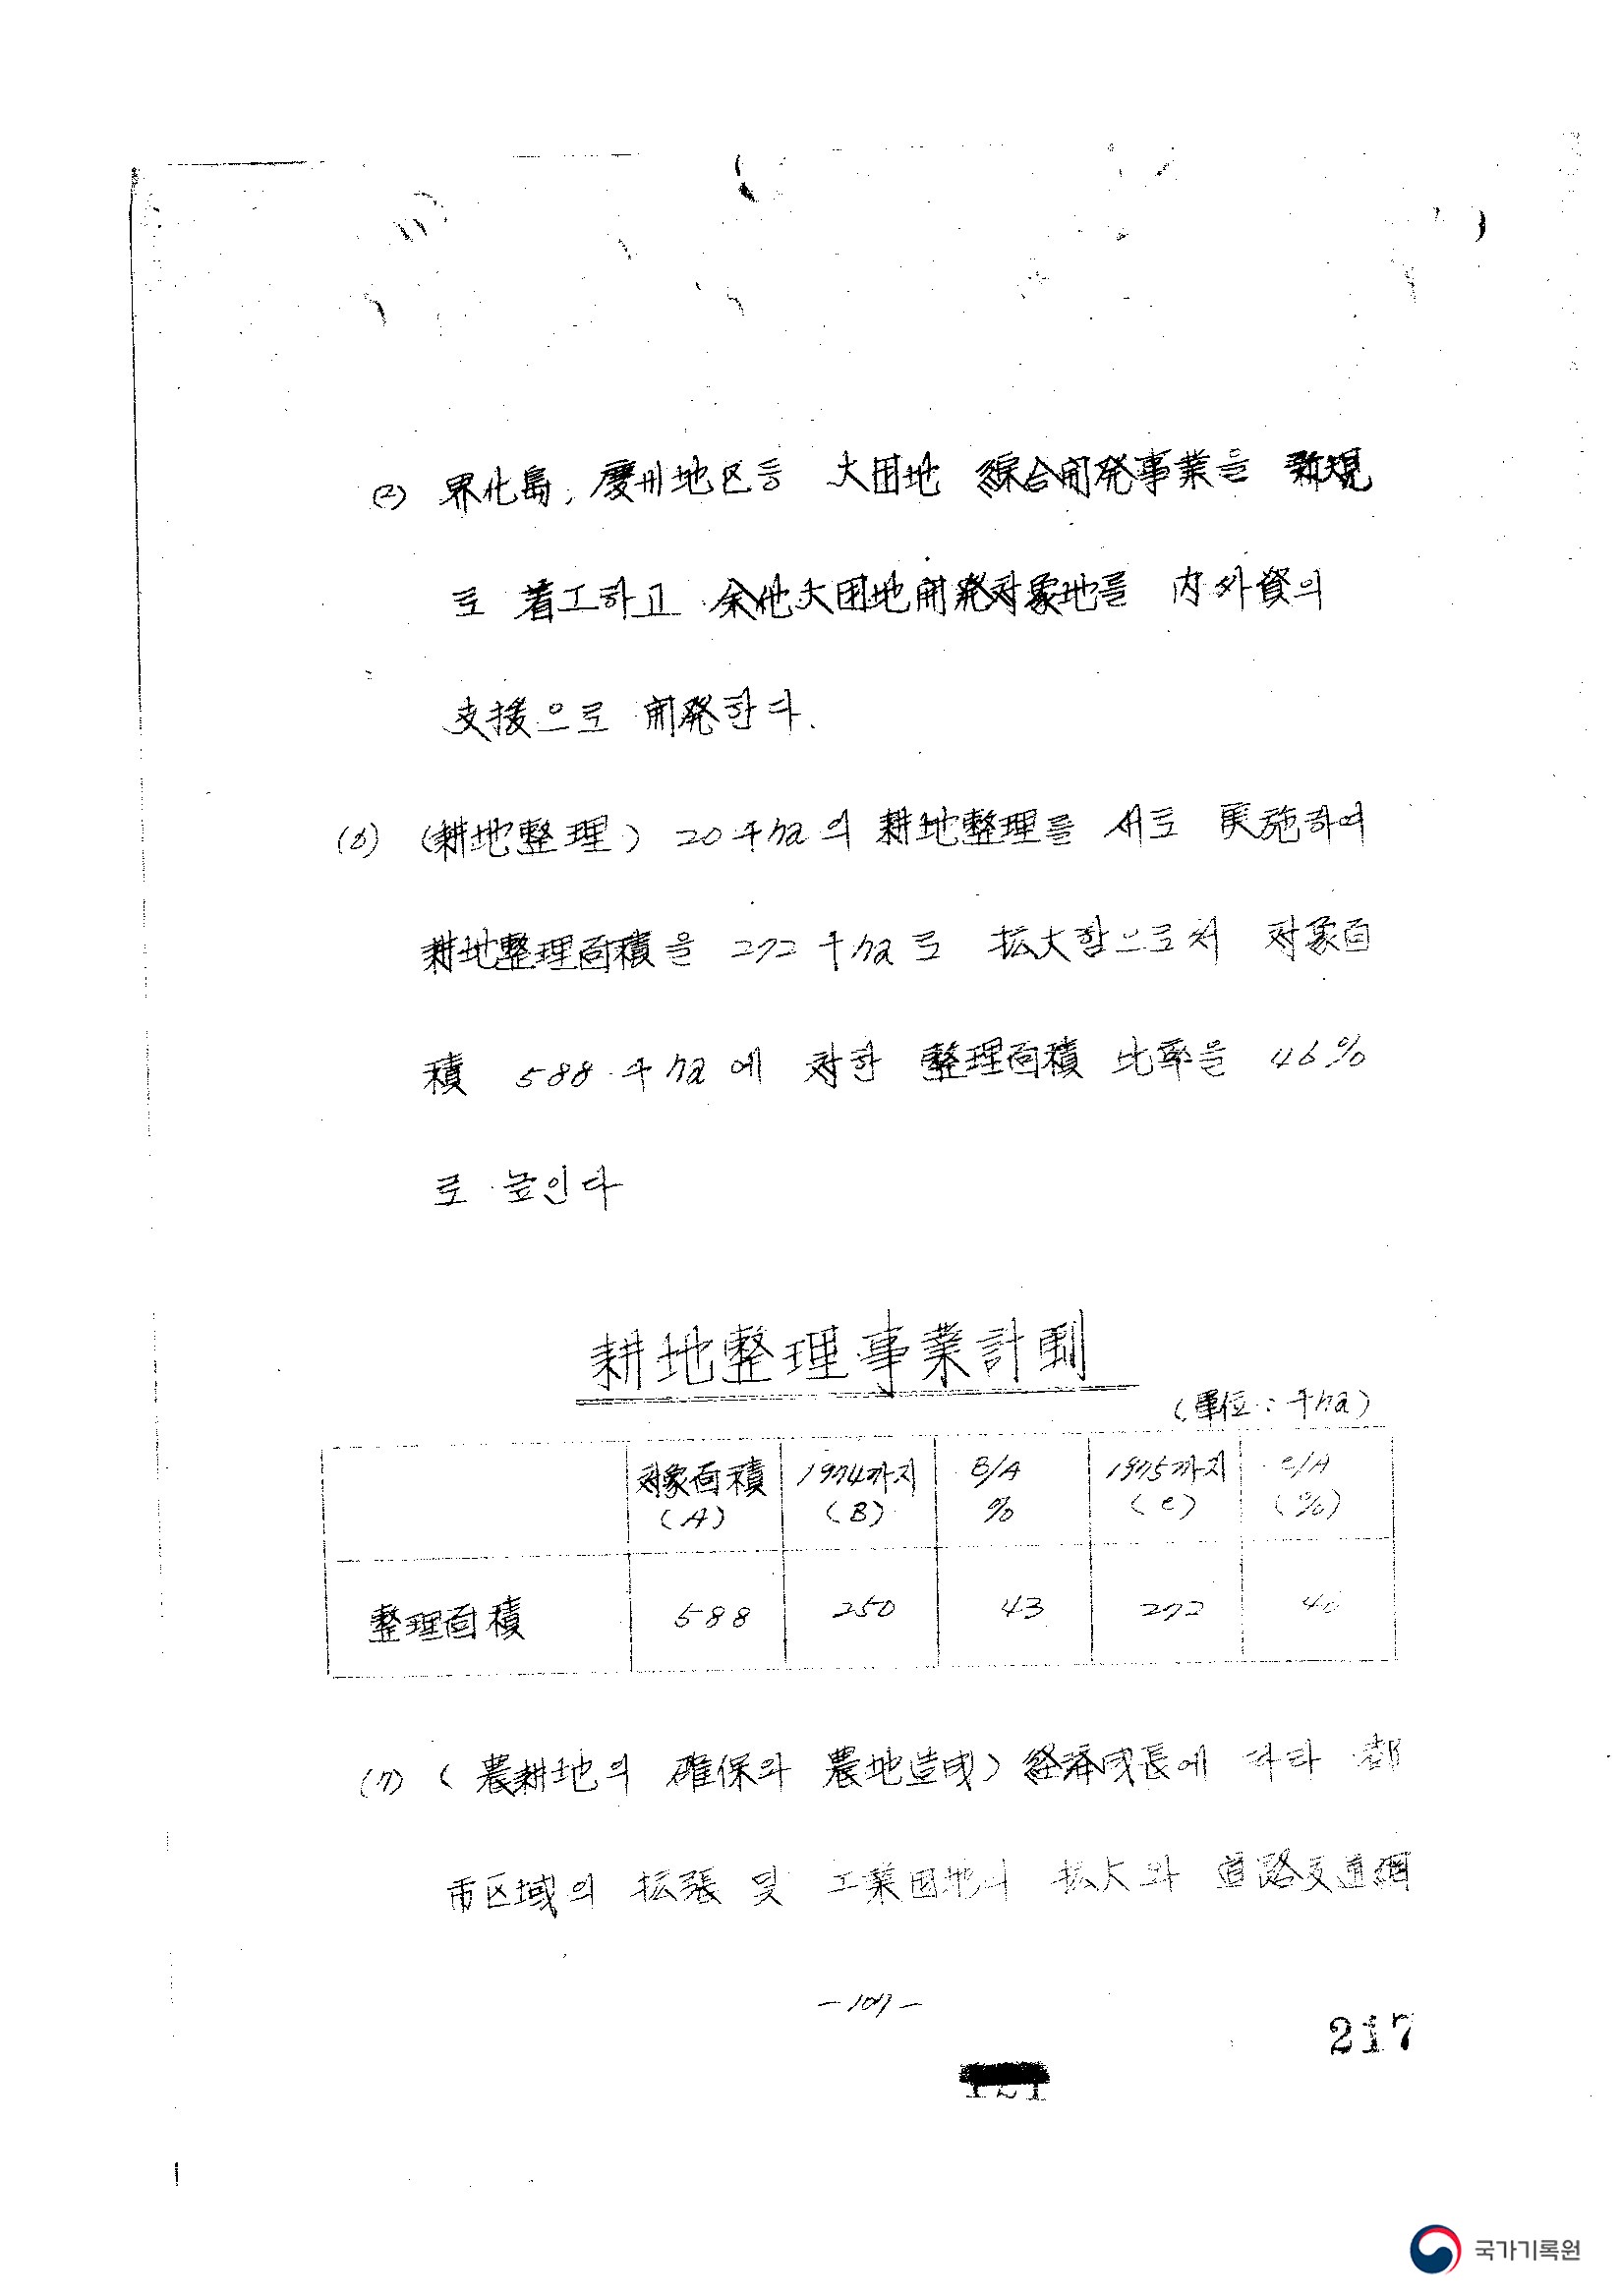 (2) 界化島, 慶州地区등 大団地 綜合開発事業을 新規
로 着工하고 余他大団地開発対象地를 内外資의
支援으로 開発한다.
(6) (耕地整理) 20千ha의 耕地整理를 새로 実施하여
耕地整理面積을 272千ha로 拡大함으로서 対象面
積 588千ha에 対한 整理面積 比率을 46%
로 높인다
耕地整理事業計劃
(單位: 千ha)
対象面積 1974까지 B/A 1975까지 C/A
(A) (B) % (C) (%)
整理面積 588 250 43 272
(7) (農耕地의 確保와 農地造成) 経済成長에 따라 都
市区域의 拡張 및 工業団地의 拡大와 道路交通網
-107-
217
국가기록원